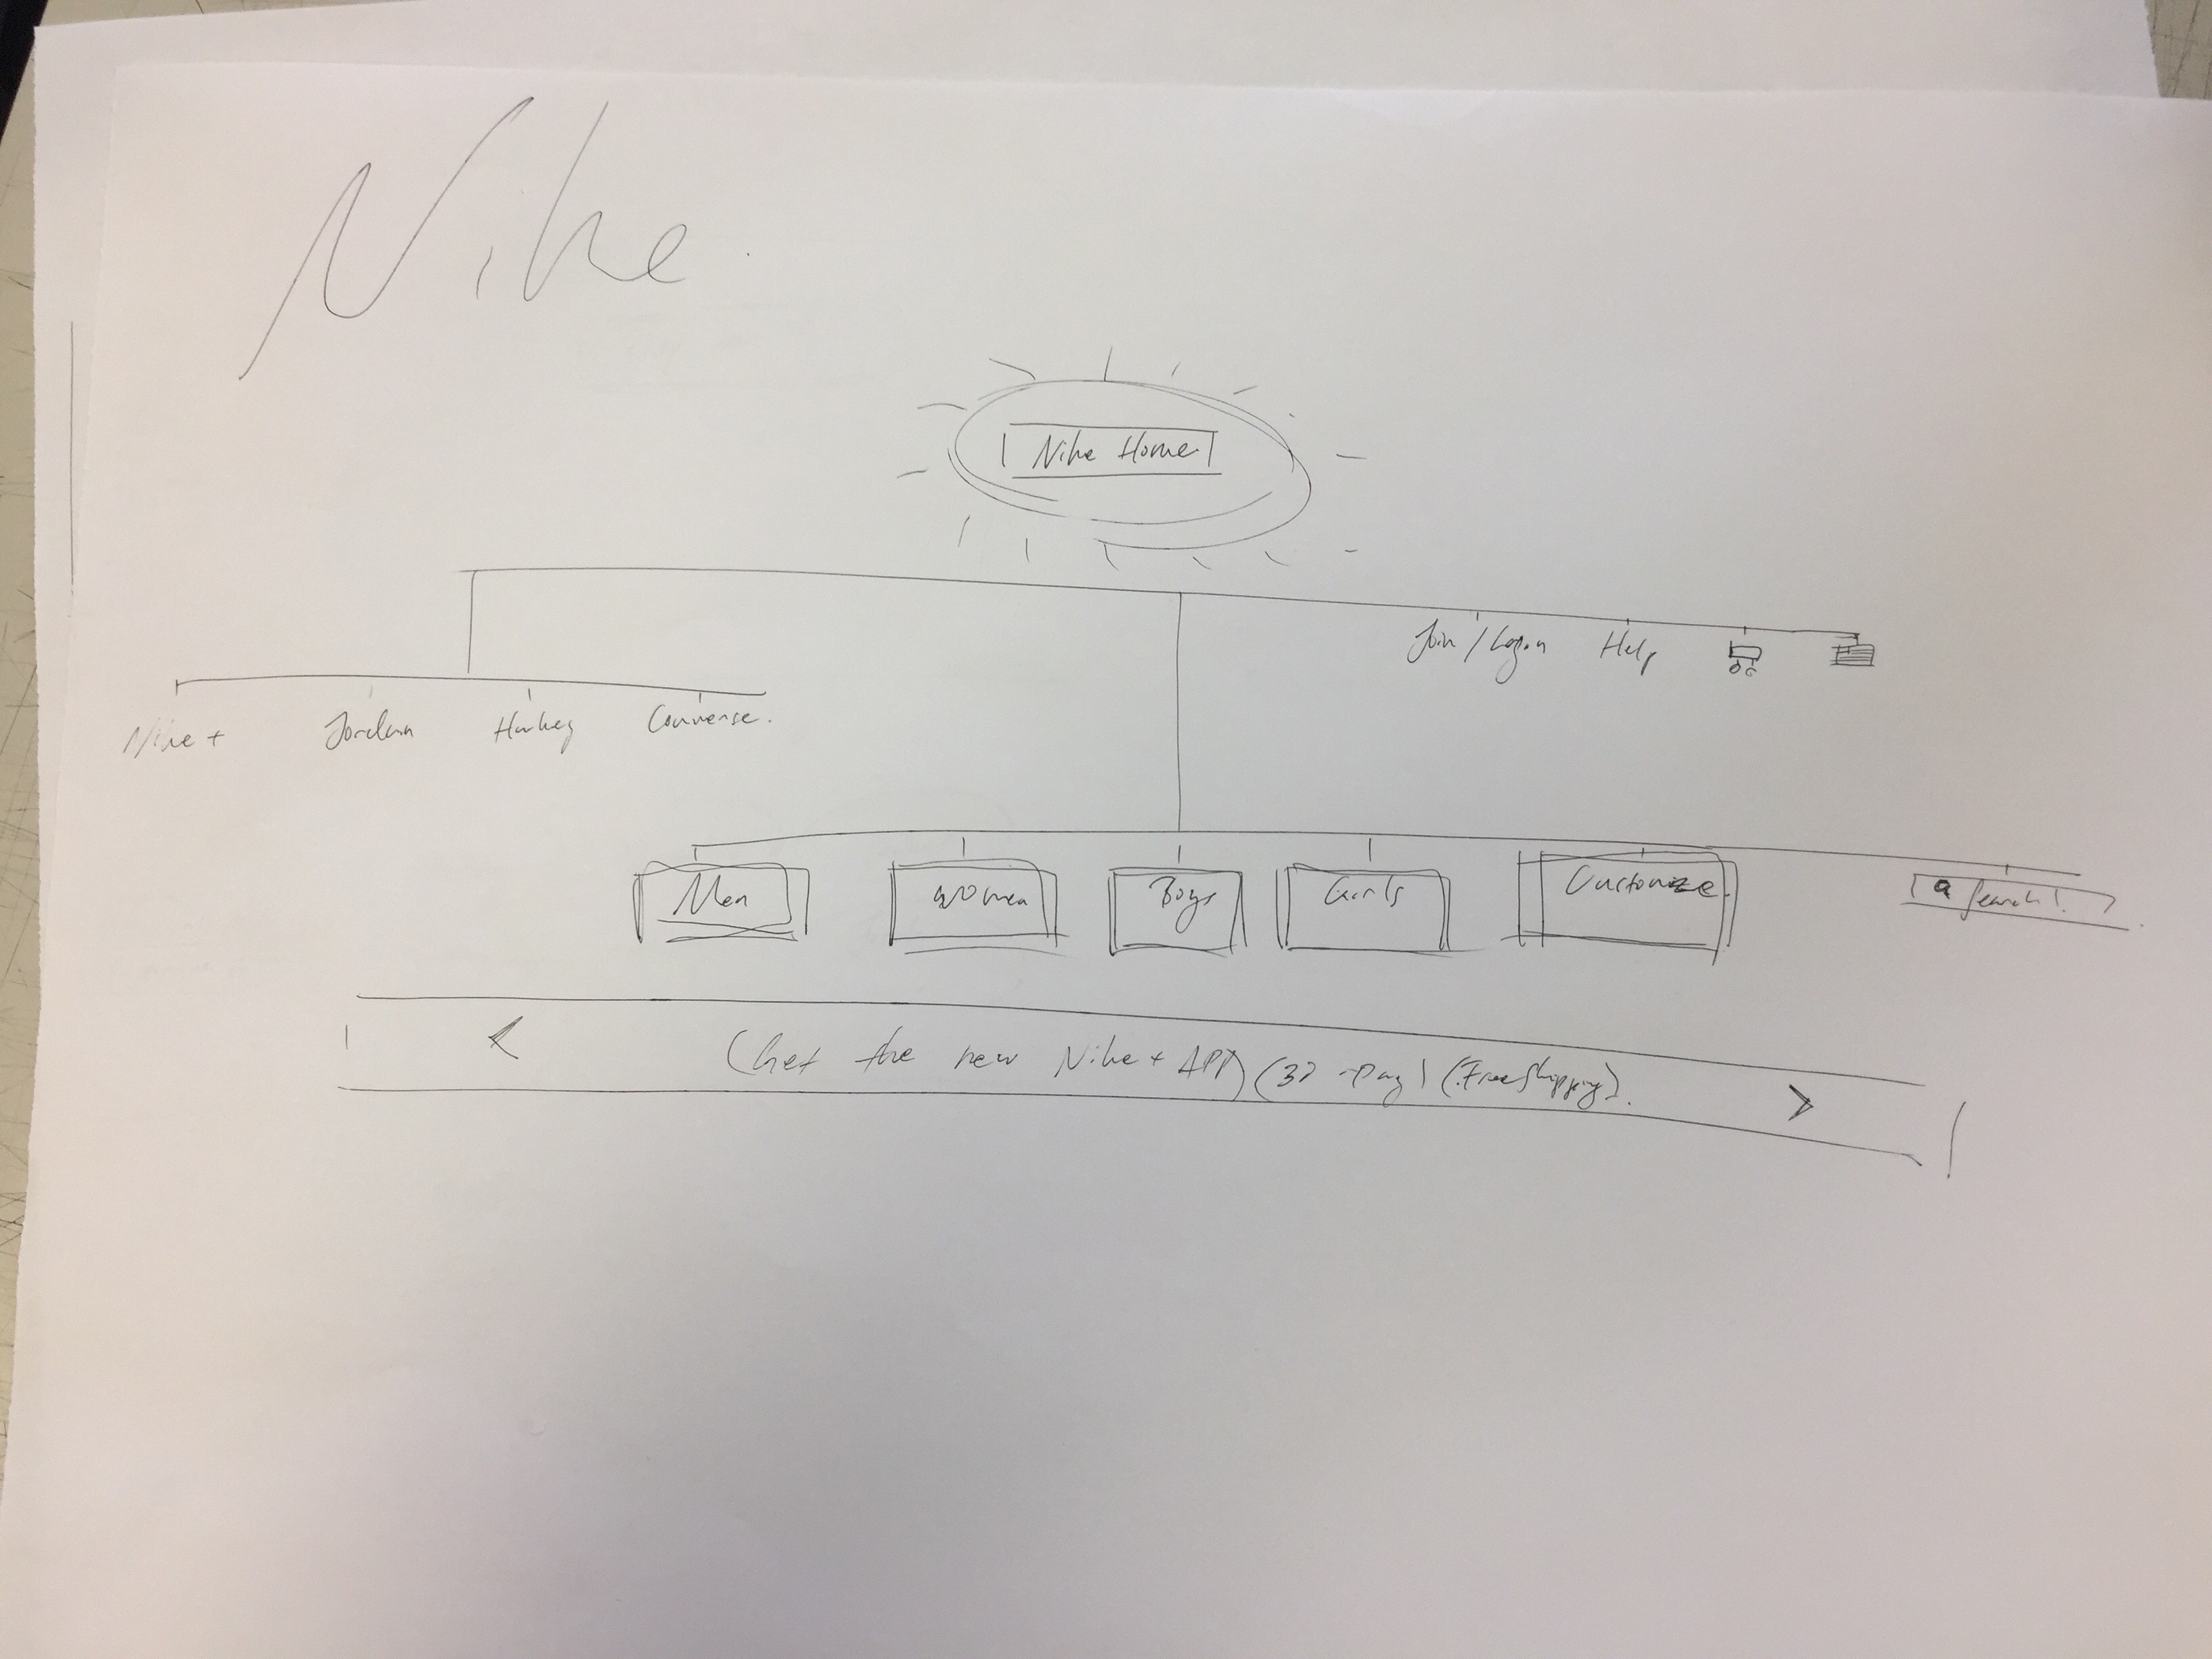 Nike
Nike Home
Join / Login Help
Nike + Jordan Hurley Converse.
Men Women Boys Girls Customize Search
< (Get the new Nike + APP) (30 -Day) (Free Shipping). >